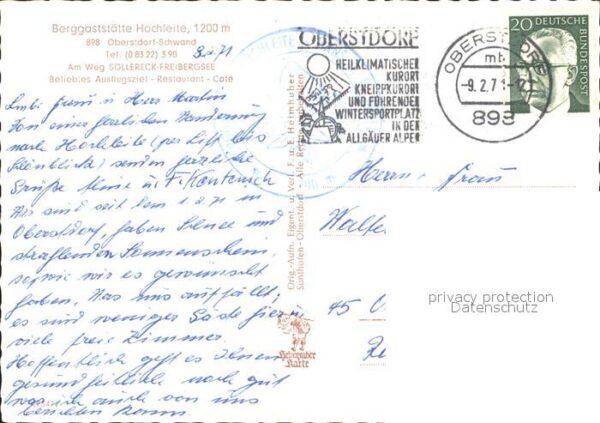 Berggaststätte Hochleite, 1200 m
898 Oberstdorf-Schwand
Tel. (0 83 22) 3 90
Am Weg SÖLLERECK-FREIBERGSEE
Beliebtes Ausflugsziel - Restaurant - Café
8.2.71
Liebe Frau u Herr Martin
Von einer herrlichen Wanderung
nach Hochleite (per Lift bis
senden herzliche
Grüße Minne u F. Kentensch
Wir sind seit dem
Oberstdorf, haben Schnee und
strahlenden Sonnenschein,
so wie wir es gewünscht
haben. Was uns auffällt;
es sind weniger Gäste hier u
viele freie Zimmer.
Hoffentlich geht es Ihnen
gesundheitlich noch gut
was ich auch von uns
berichten kann.
Orig.-Aufn. Eigent. u. Verl. F. u. E. Heimhuber
Sonthofen-Oberstdorf - Alle Rechte vorbehalten
Heimhuber
Karte
OBERSTDORF
HEILKLIMATISCHER
KURORT
KNEIPPKURORT
UND FÜHRENDER
WINTERSPORTPLATZ
IN DEN
ALLGÄUER ALPEN
OBERSTDORF
mb
-9.2.71-12
898
20 DEUTSCHE
BUNDESPOST
Herrn u. Frau
Walte
45 O
privacy protection
Datenschutz